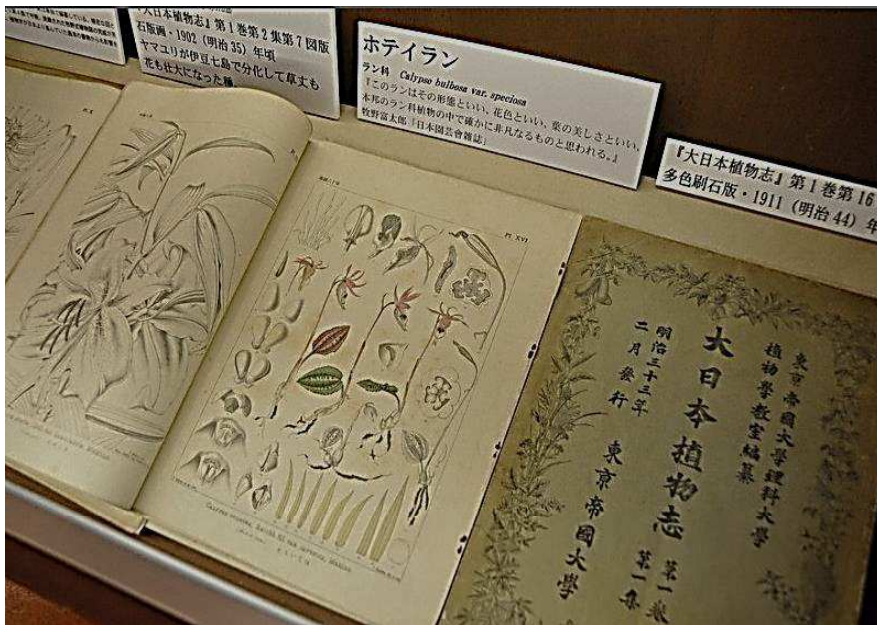 『大日本植物志』第1巻第2集第7図版
石版画・1902（明治35）年頃
ヤマユリが伊豆七島で分化して草丈も
花も壮大になった種
ホテイラン
ラン科 Calypso bulbosa var. speciosa
『このランはその形態といい、花色といい、葉の美しさといい、
本邦のラン科植物の中で確かに非凡なるものと思われる。』
牧野富太郎「日本園芸會雑誌」
『大日本植物志』第1巻第16
多色刷石版・1911（明治44）年
Pl. XVI.
東京帝國大學理科大學
植物學教室編纂
大日本植物志
第一巻
第一集
明治三十三年
二月發行
東京帝國大學